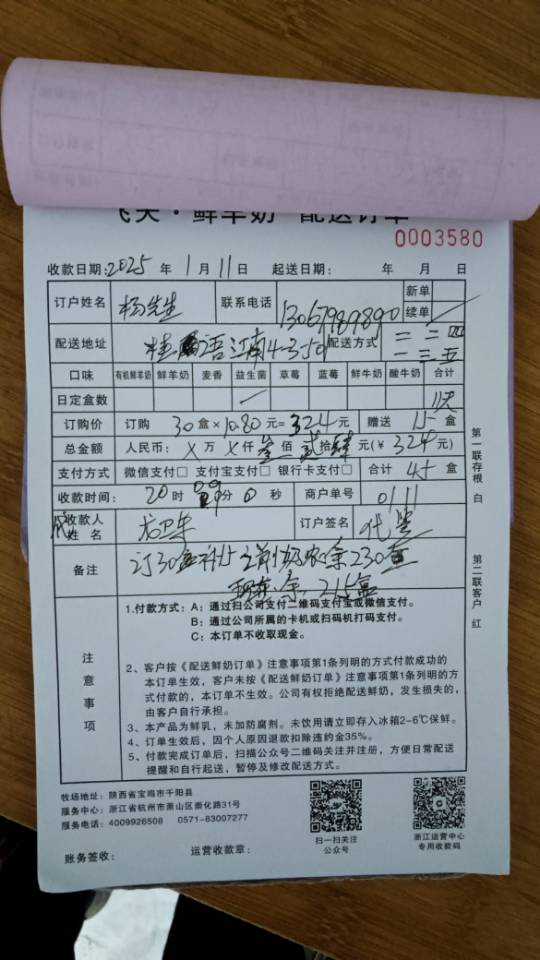 飞天·鲜羊奶 配送订单
0003580
收款日期：2025 年 1 月 11 日 起送日期： 年 月 日
订户姓名 杨先生 联系电话 13067989890 新单 续单
配送地址 语江南4-3-501 配送方式 一 二 三 四
一 三 五
口味 有机鲜羊奶 鲜羊奶 麦香 益生菌 草莓 蓝莓 鲜牛奶 酸牛奶 合计
日定盒数
订购价 订购 30 盒×10.80元=324元 赠送 15 盒
总金额 人民币：X万X仟叁佰贰拾肆元(￥324元)
支付方式 微信支付□ 支付宝支付□ 银行卡支付□ 合计 45 盒
收款时间： 20时 分 0 秒 商户单号 0111
收款人 姓名 订户签名 代签
备注 订30盒 余230盒
余 215盒
第一联存根 白
第二联客户 红
注意事项
1.付款方式：A：通过扫公司支付二维码支付宝或微信支付。
B：通过公司所属的卡机或扫码机打码支付。
C：本订单不收取现金。
2、客户按《配送鲜奶订单》注意事项第1条列明的方式付款成功的
本订单生效，客户未按《配送鲜奶订单》注意事项第1条列明的方
式付款的，本订单不生效。公司有权拒绝配送鲜奶，发生损失的，
由客户自行承担。
3、本产品为鲜乳，未加防腐剂。未饮用请立即存入冰箱2-6℃保鲜。
4、订单生效后，因个人原因退款扣除违约金35%。
5、付款完成订单后，扫描公众号二维码关注并注册，方便日常配送
提醒和自行起送，暂停及修改配送方式。
牧场地址：陕西省宝鸡市千阳县
服务中心：浙江省杭州市萧山区崇化路31号
服务电话：4009926508 0571-83007277
扫一扫关注
公众号
浙江运营中心
专用收款码
账务签收： 运营收款章：